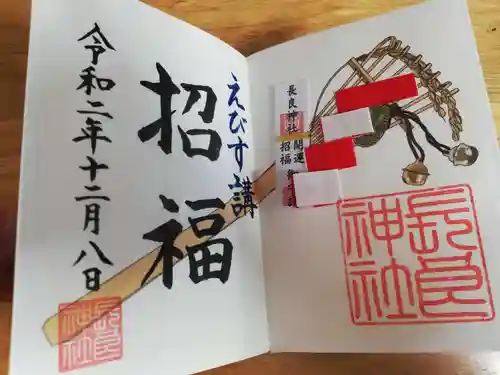 長良神社
長良神社
開運
招福
えびす講
招福
令和二年十二月八日
長良
神社